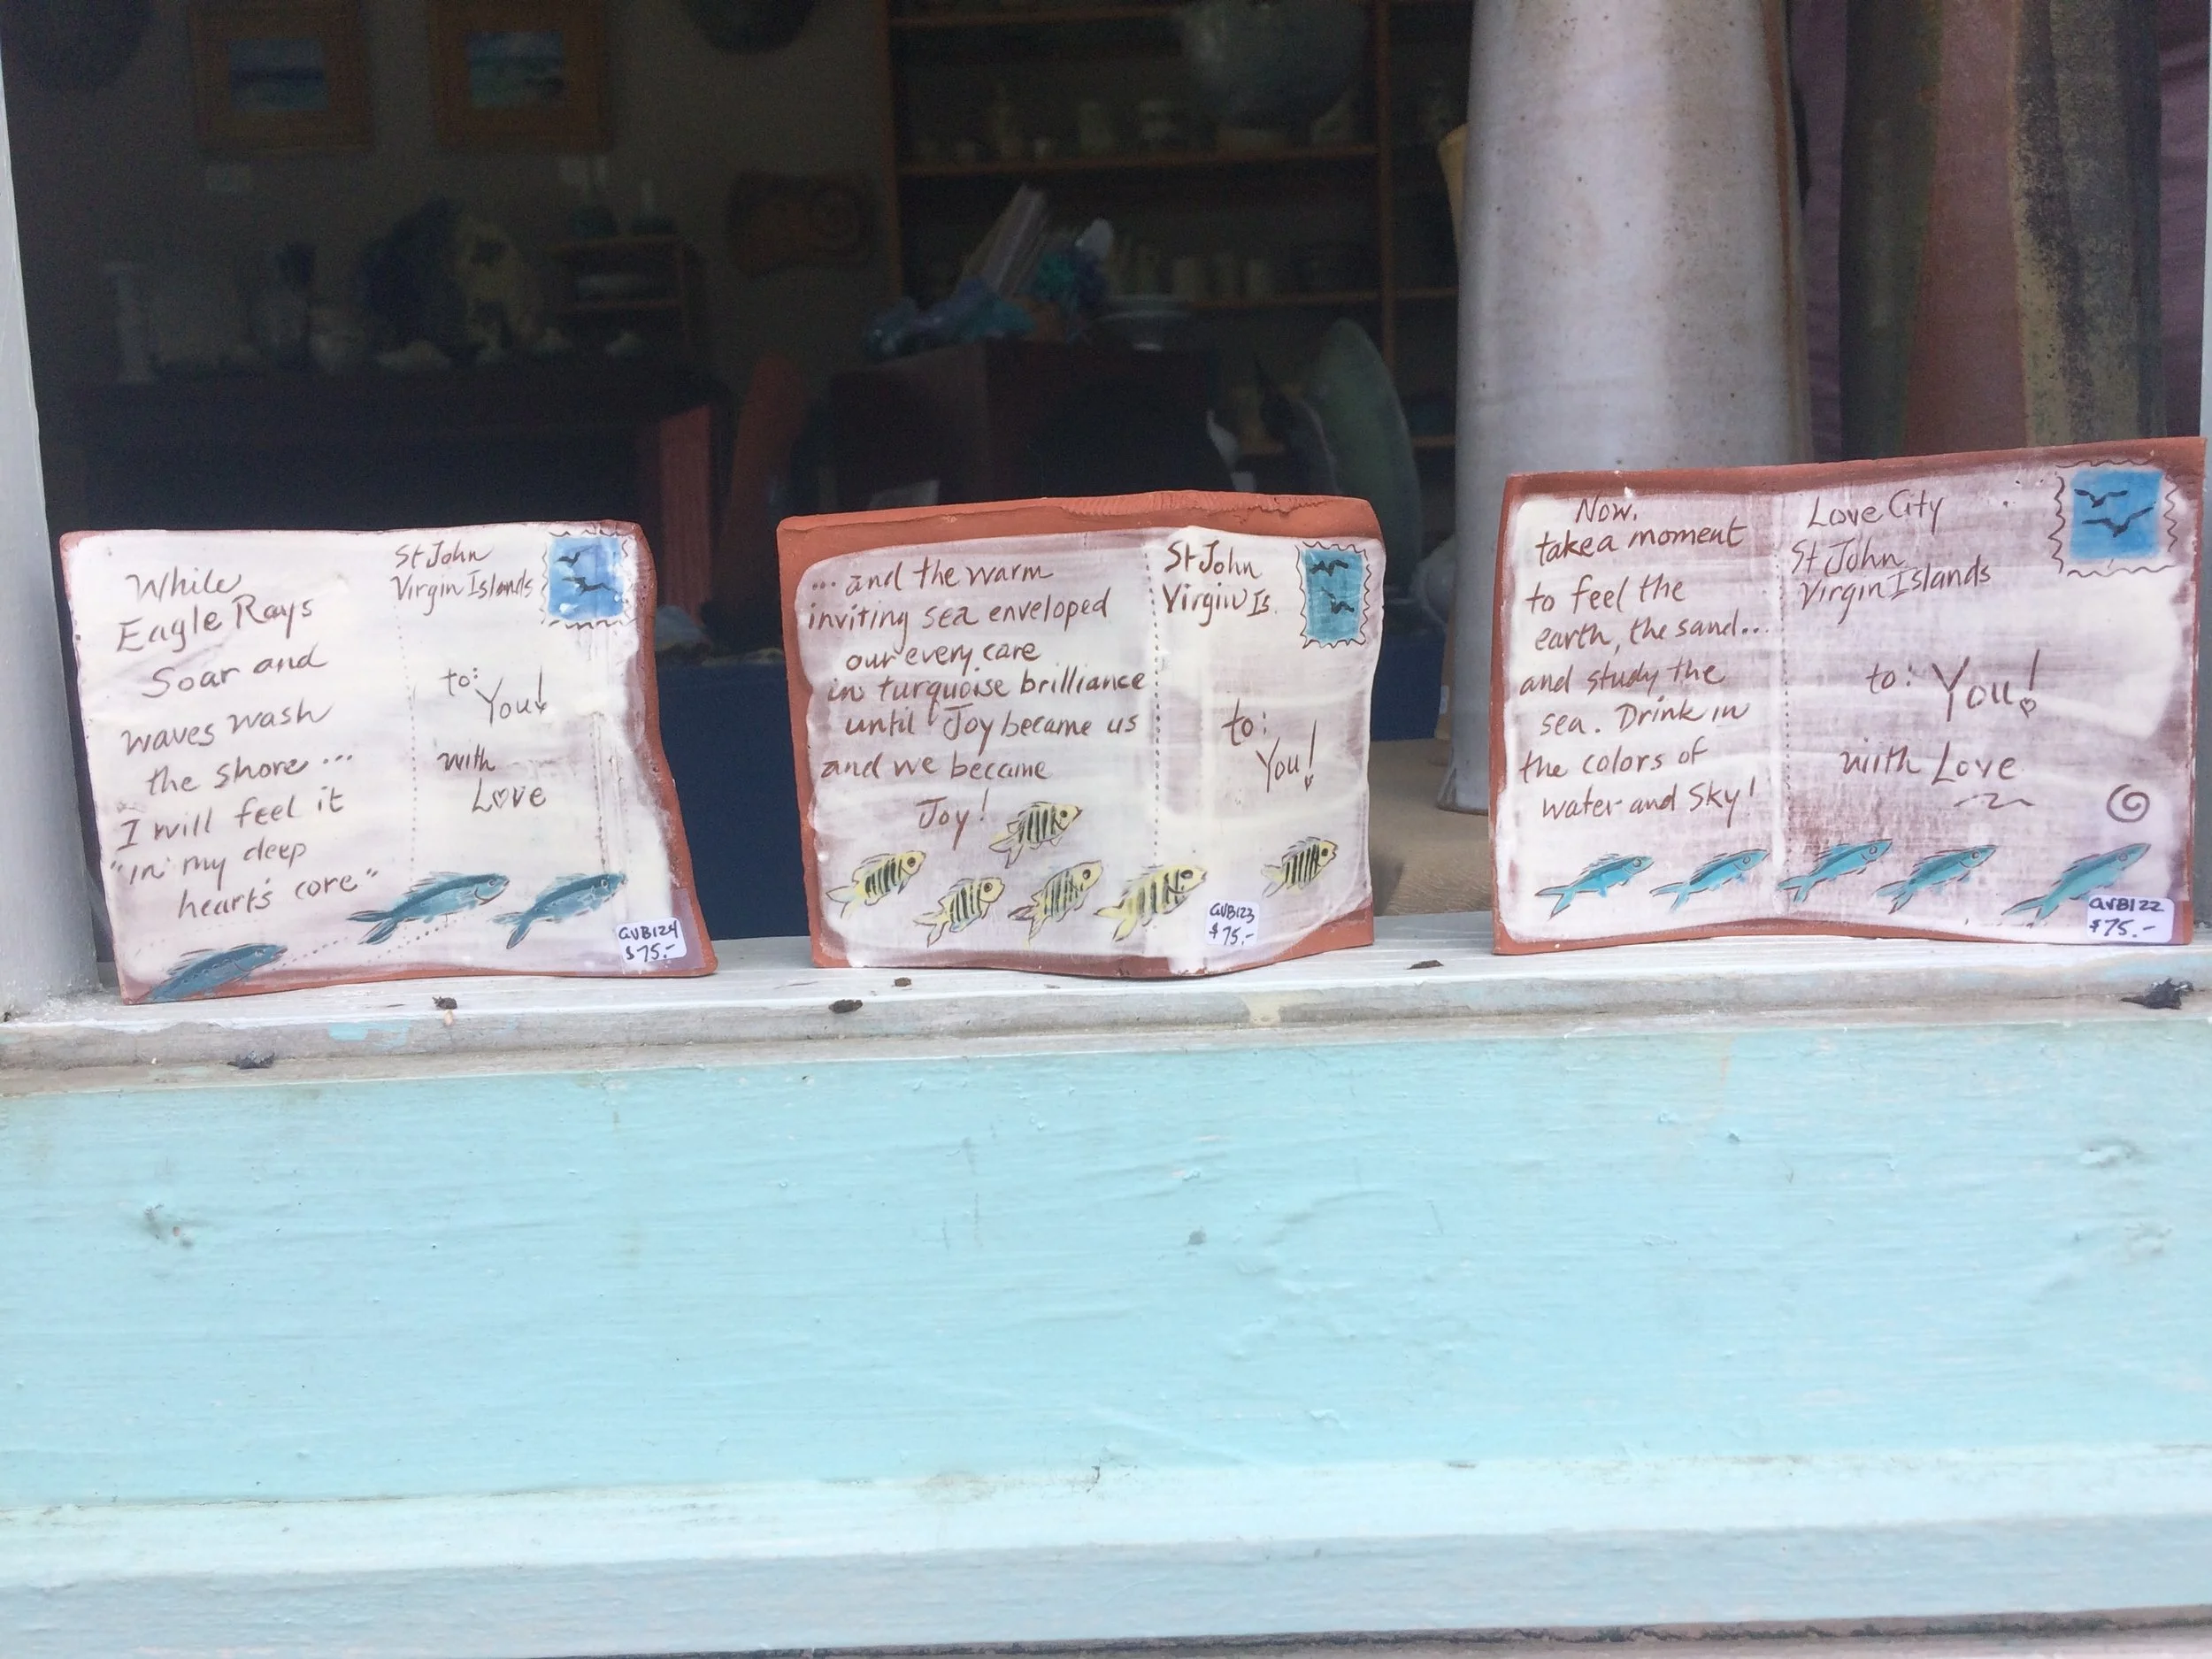 While
Eagle Rays
Soar and
waves wash
the shore...
I will feel it
"in my deep
heart's core"
St John
Virgin Islands
to:
You!
with
Love
GVB124
$75.-
... and the warm
inviting sea enveloped
our every care
in turquoise brilliance
until Joy became us
and we became
Joy!
St John
Virgin Is.
to:
You!
GVB123
$75.-
Now,
take a moment
to feel the
earth, the sand...
and study the
sea. Drink in
the colors of
water and Sky!
Love City
St John
Virgin Islands
to: You!
with Love
GVB122
$75.-